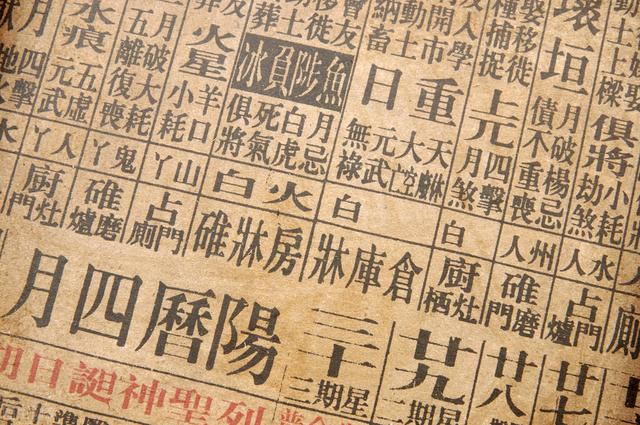 俱將
小耗
劫煞
水人
占門
爐
廿七
壞垣
月破楊忌
債不重喪
州人
碓磨
門
廿八
娶移徙
種捕捉
上元
四擊
月煞
白
廚灶
栖
廿九
期二
開市
入學
動土
納畜
重日
天
大空
元武
無祿
白
倉庫牀
三十
星期三
友
移徙
葬土
魚陟負冰
月忌
白虎
死氣
俱將
火白
房牀碓
火星
羊口
小耗
山丫
占門
廁
水痕
月破大耗
五離復喪
五虛
元武
鬼丫
碓磨
爐
月
四擊
人丫
廚灶
門
陽曆四月
列聖神誕日